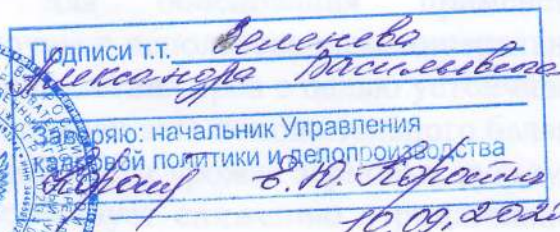 Подписи т.т. Зеленева
Александра Васильевича
Заверяю: начальник Управления
кадровой политики и делопроизводства
Е.Ю. Коростик
10.09.202